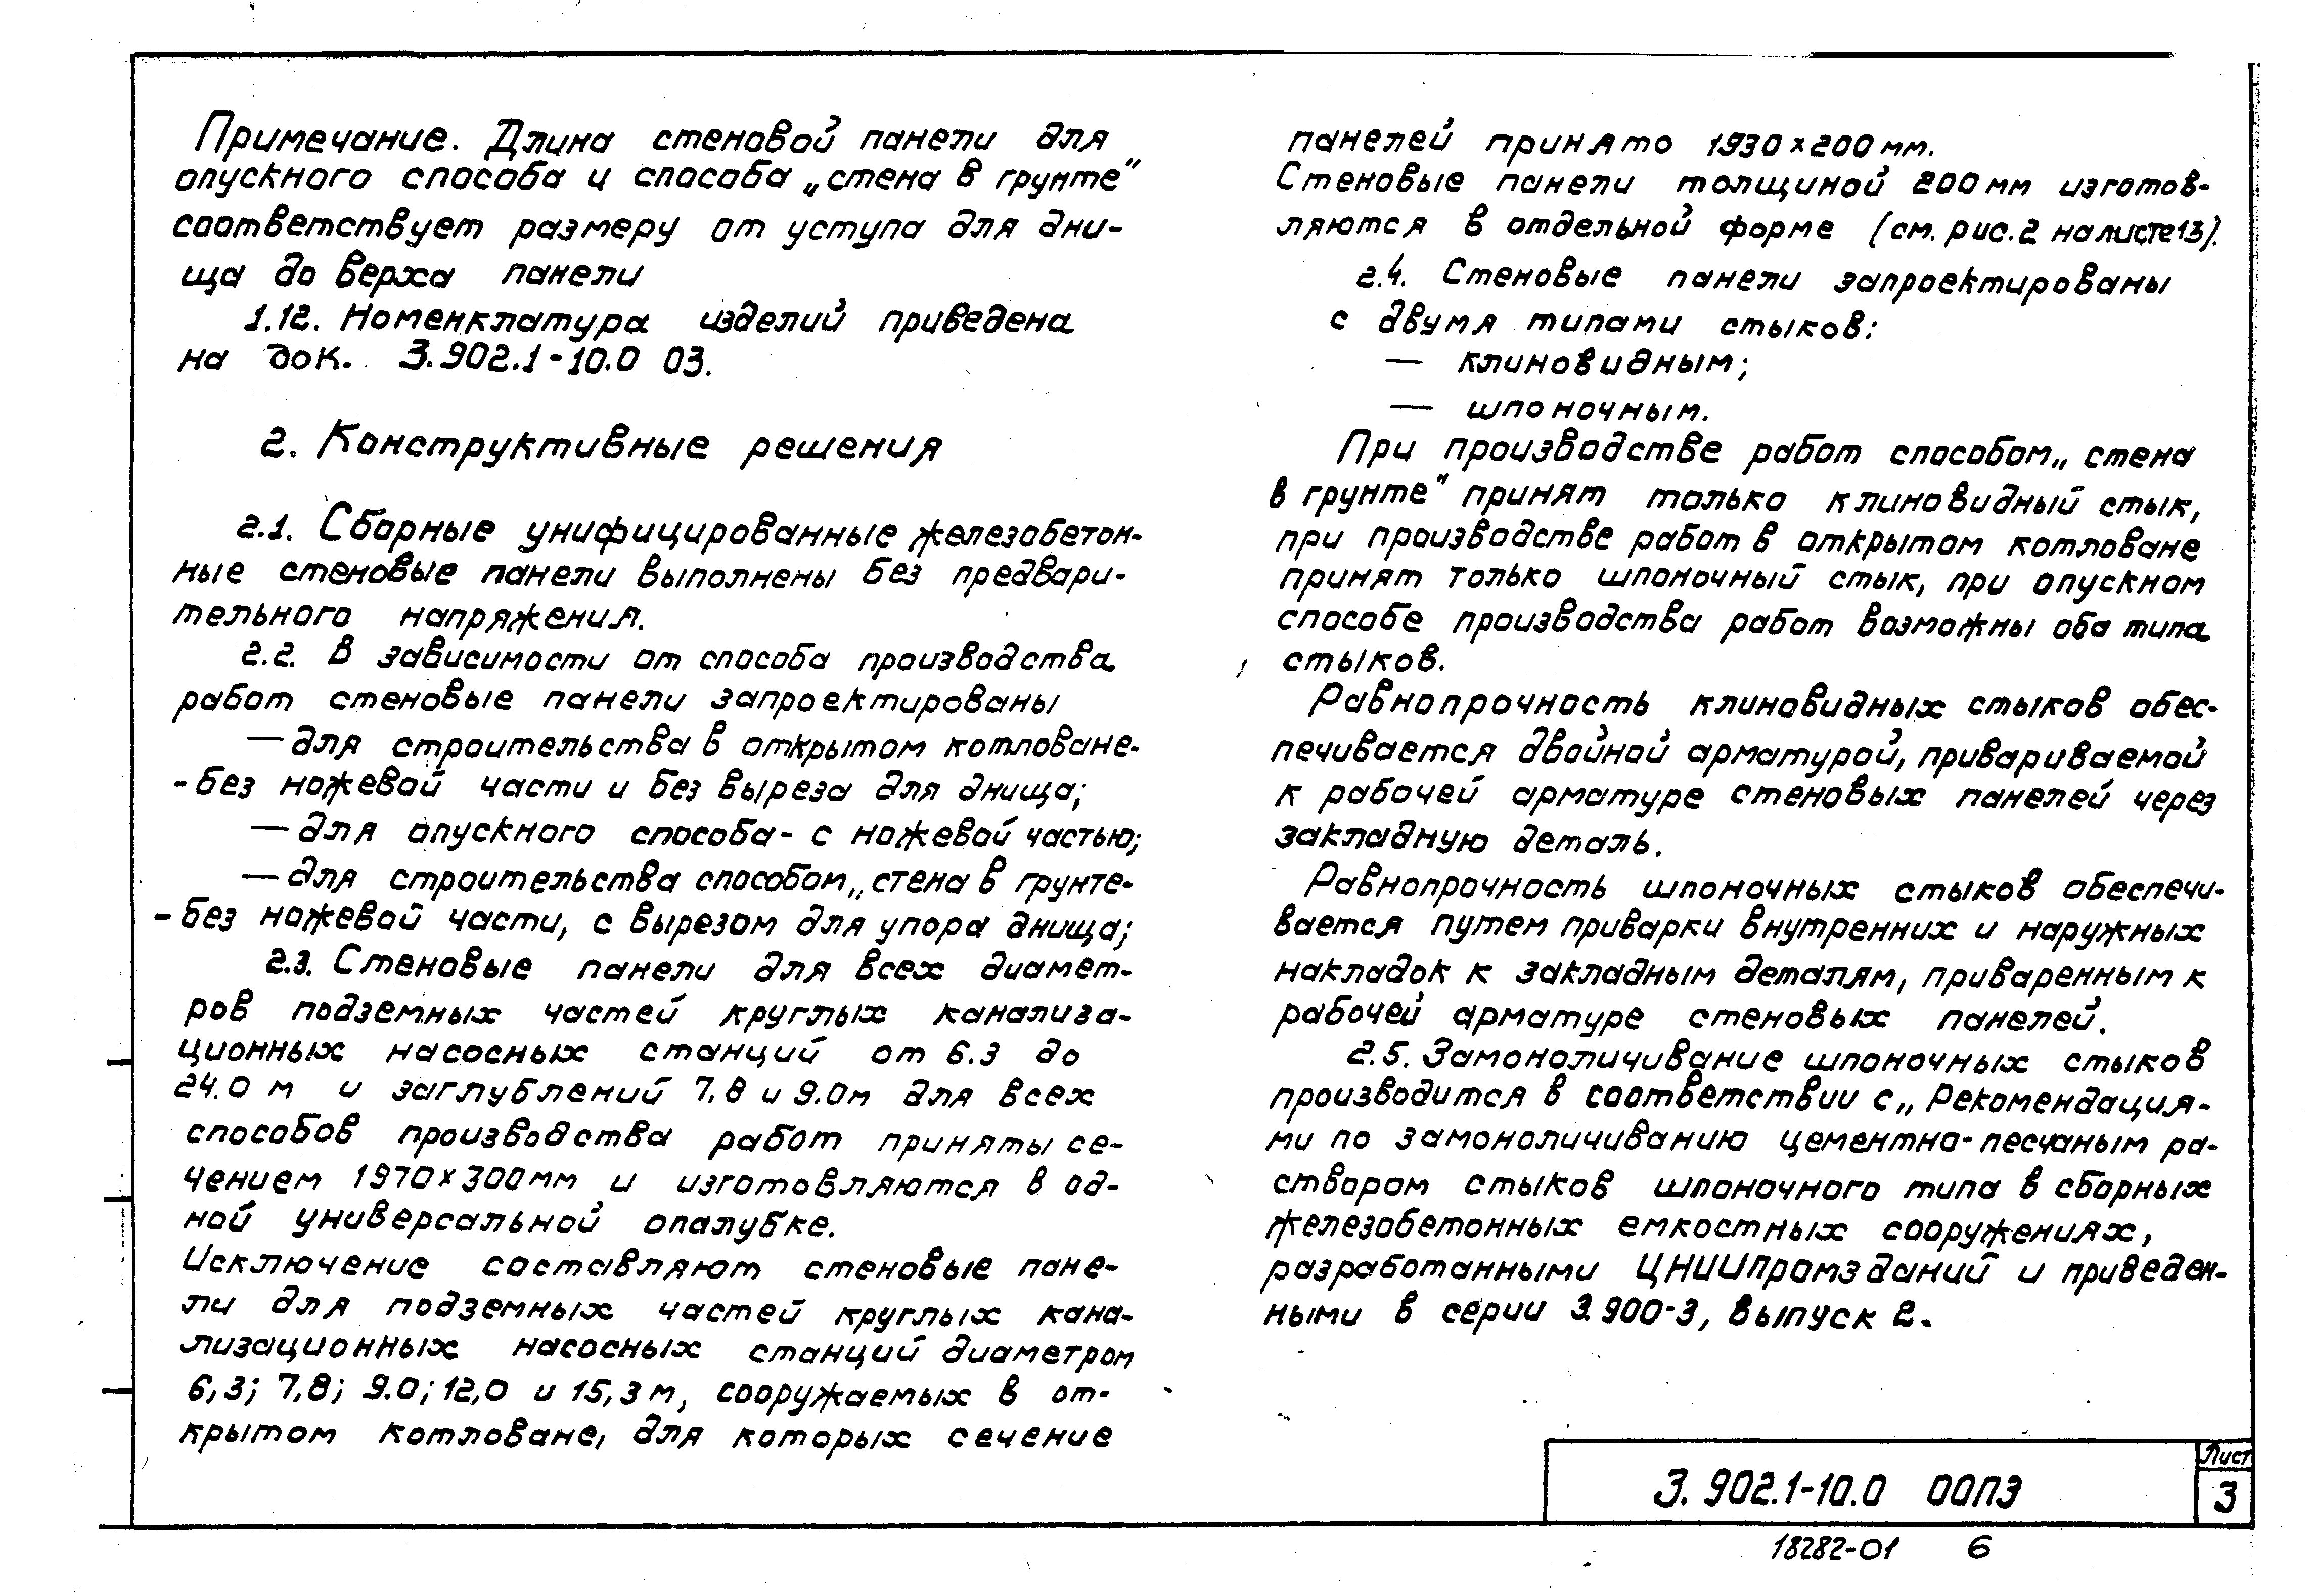 Примечание. Длина стеновой панели для
опускного способа и способа „стена в грунте"
соответствует размеру от уступа для дни-
ща до верха панели
1.12. Номенклатура изделий приведена
на док. 3.902.1-10.0 03.
2. Конструктивные решения
2.1. Сборные унифицированные железобетон-
ные стеновые панели выполнены без предвари-
тельного напряжения.
2.2. В зависимости от способа производства
работ стеновые панели запроектированы
— для строительства в открытом котловане-
- без ножевой части и без выреза для днища;
— для опускного способа - с ножевой частью;
— для строительства способом „стена в грунте-
- без ножевой части, с вырезом для упора днища;
2.3. Стеновые панели для всех диамет-
ров подземных частей круглых канализа-
ционных насосных станций от 6.3 до
24.0 м и заглублений 7,8 и 9.0м для всех
способов производства работ приняты се-
чением 1970×300мм и изготовляются в од-
ной универсальной опалубке.
Исключение составляют стеновые пане-
ли для подземных частей круглых кана-
лизационных насосных станций диаметром
6,3; 7,8; 9.0; 12,0 и 15,3м, сооружаемых в от-
крытом котловане, для которых сечение
панелей принято 1930×200мм.
Стеновые панели толщиной 200мм изготов-
ляются в отдельной форме (см. рис.2 на листе13).
2.4. Стеновые панели запроектированы
с двумя типами стыков:
— клиновидным;
— шпоночным.
При производстве работ способом „стена
в грунте" принят только клиновидный стык,
при производстве работ в открытом котловане
принят только шпоночный стык, при опускном
способе производства работ возможны оба типа
стыков.
Равнопрочность клиновидных стыков обес-
печивается двойной арматурой, привариваемой
к рабочей арматуре стеновых панелей через
закладную деталь.
Равнопрочность шпоночных стыков обеспечи-
вается путем приварки внутренних и наружных
накладок к закладным деталям, приваренным к
рабочей арматуре стеновых панелей.
2.5. Замоноличивание шпоночных стыков
производится в соответствии с „Рекомендация-
ми по замоноличиванию цементно-песчаным ра-
створом стыков шпоночного типа в сборных
железобетонных емкостных сооружениях,
разработанными ЦНИИпромзданий и приведен-
ными в серии 3.900-3, выпуск 2.
3.902.1-10.0 00ПЗ
Лист
3
18282-01 6